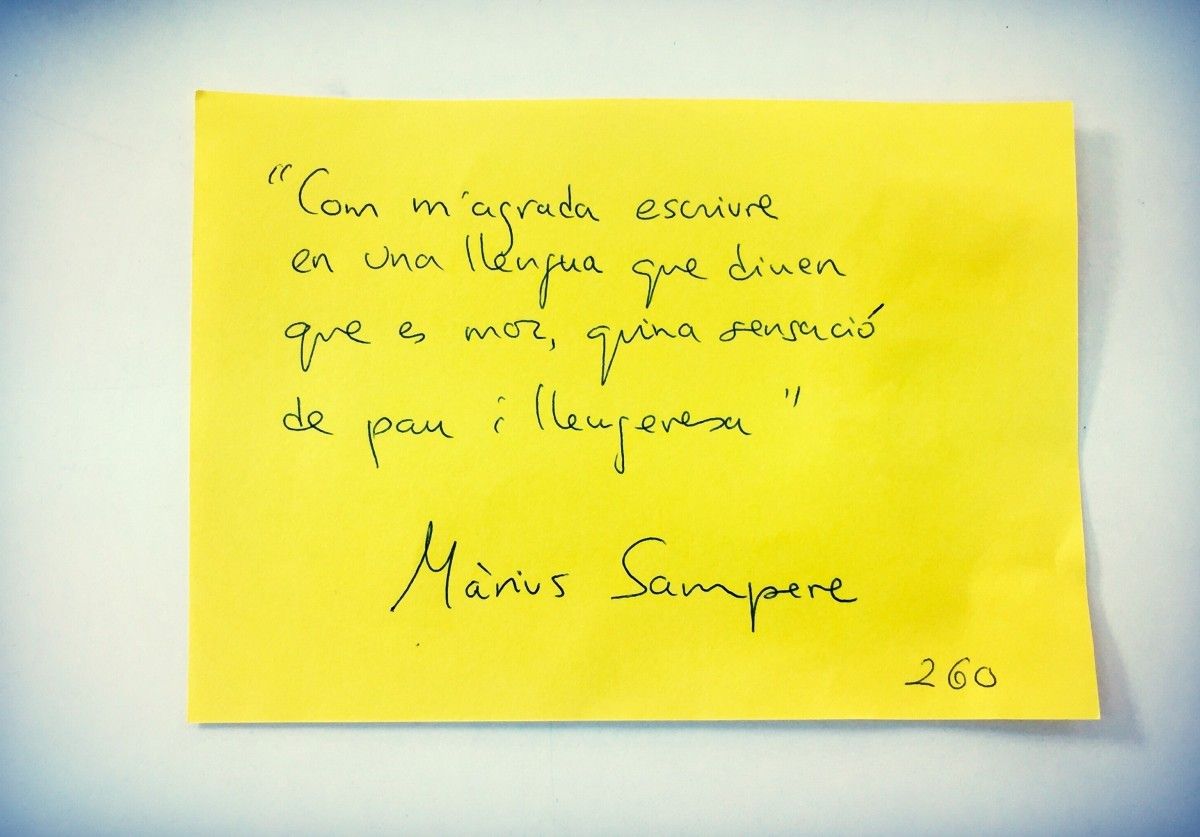 “Com m'agrada escriure
en una llengua que diuen
que es mor, quina sensació
de pau i lleugeresa”
Màrius Sampere
260